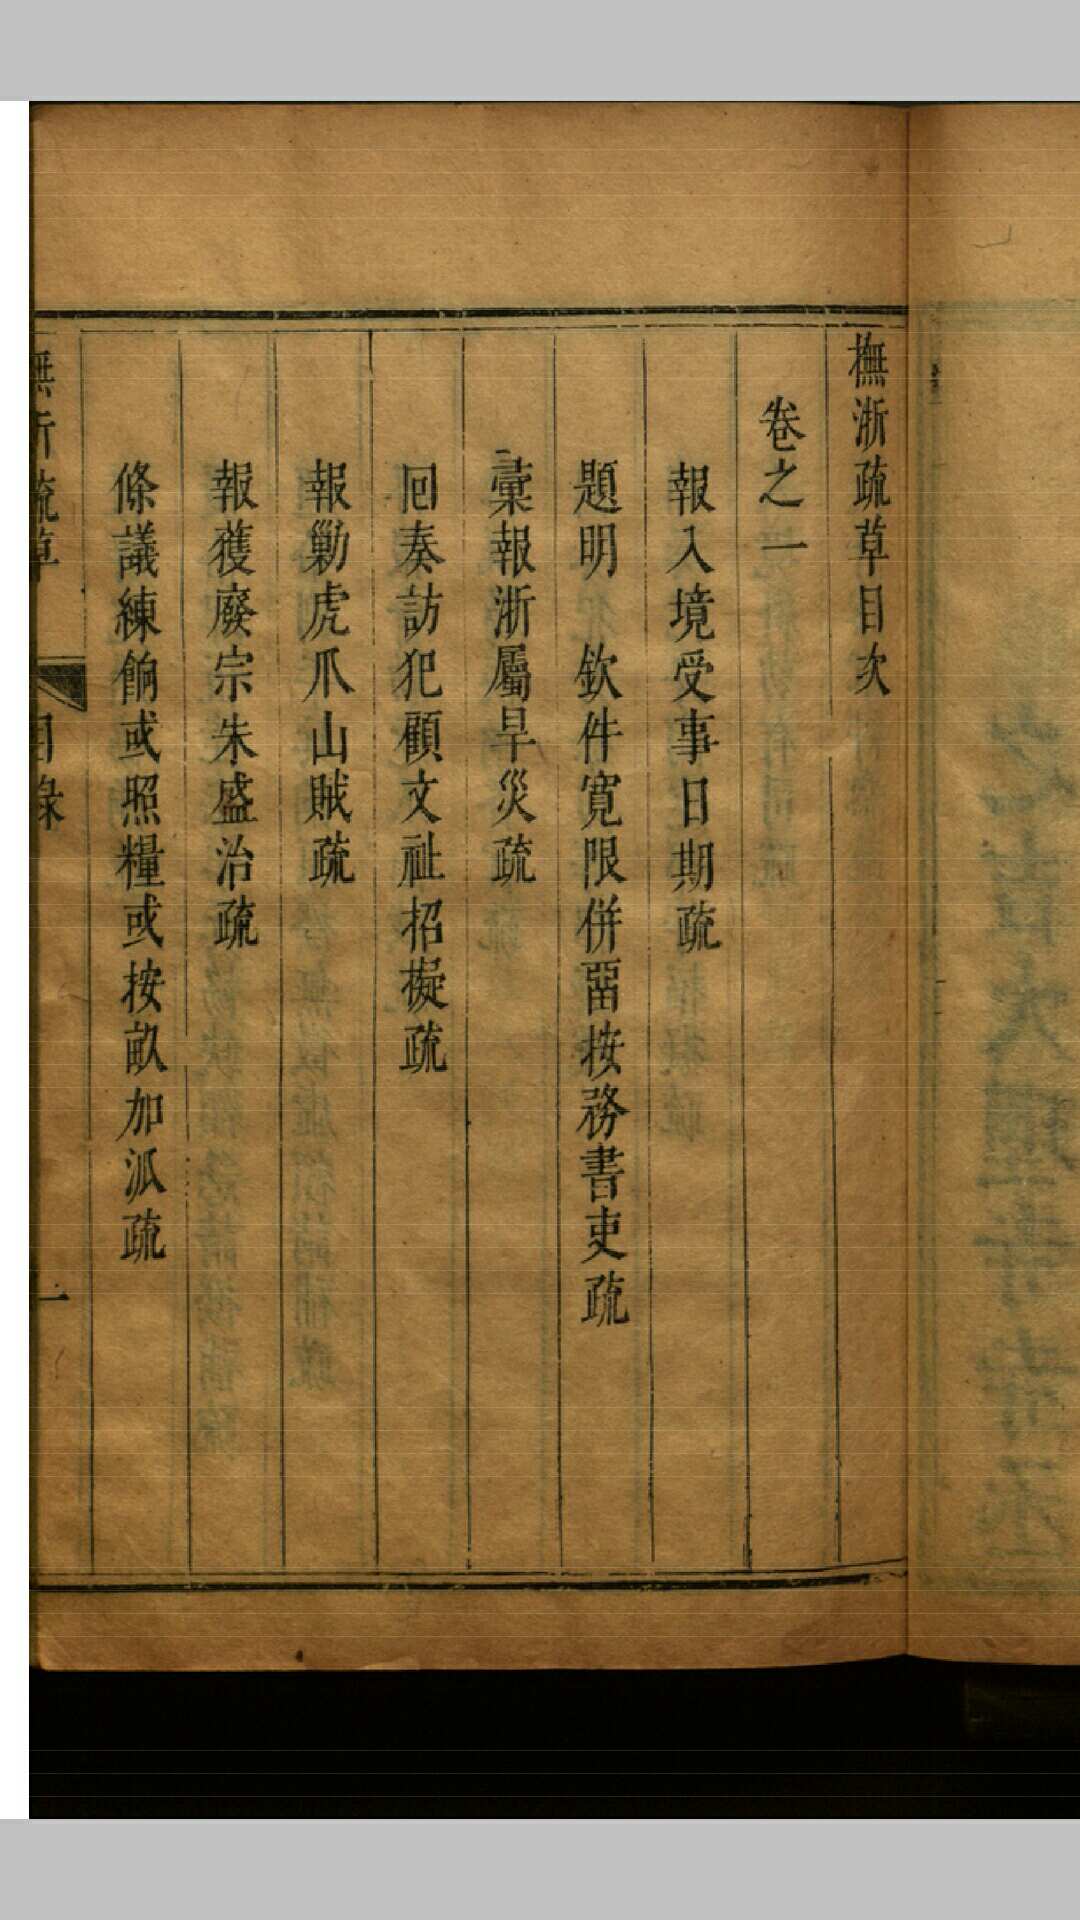 撫浙疏草目次
卷之一
報入境受事日期疏
題明　欽件寬限併畱按務書吏疏
彙報浙屬旱災疏
回奏訪犯顧文祉招擬疏
報勦虎爪山賊疏
報獲廢宗朱盛治疏
條議練餉或照糧或按畝加派疏
撫浙疏草　目錄　一